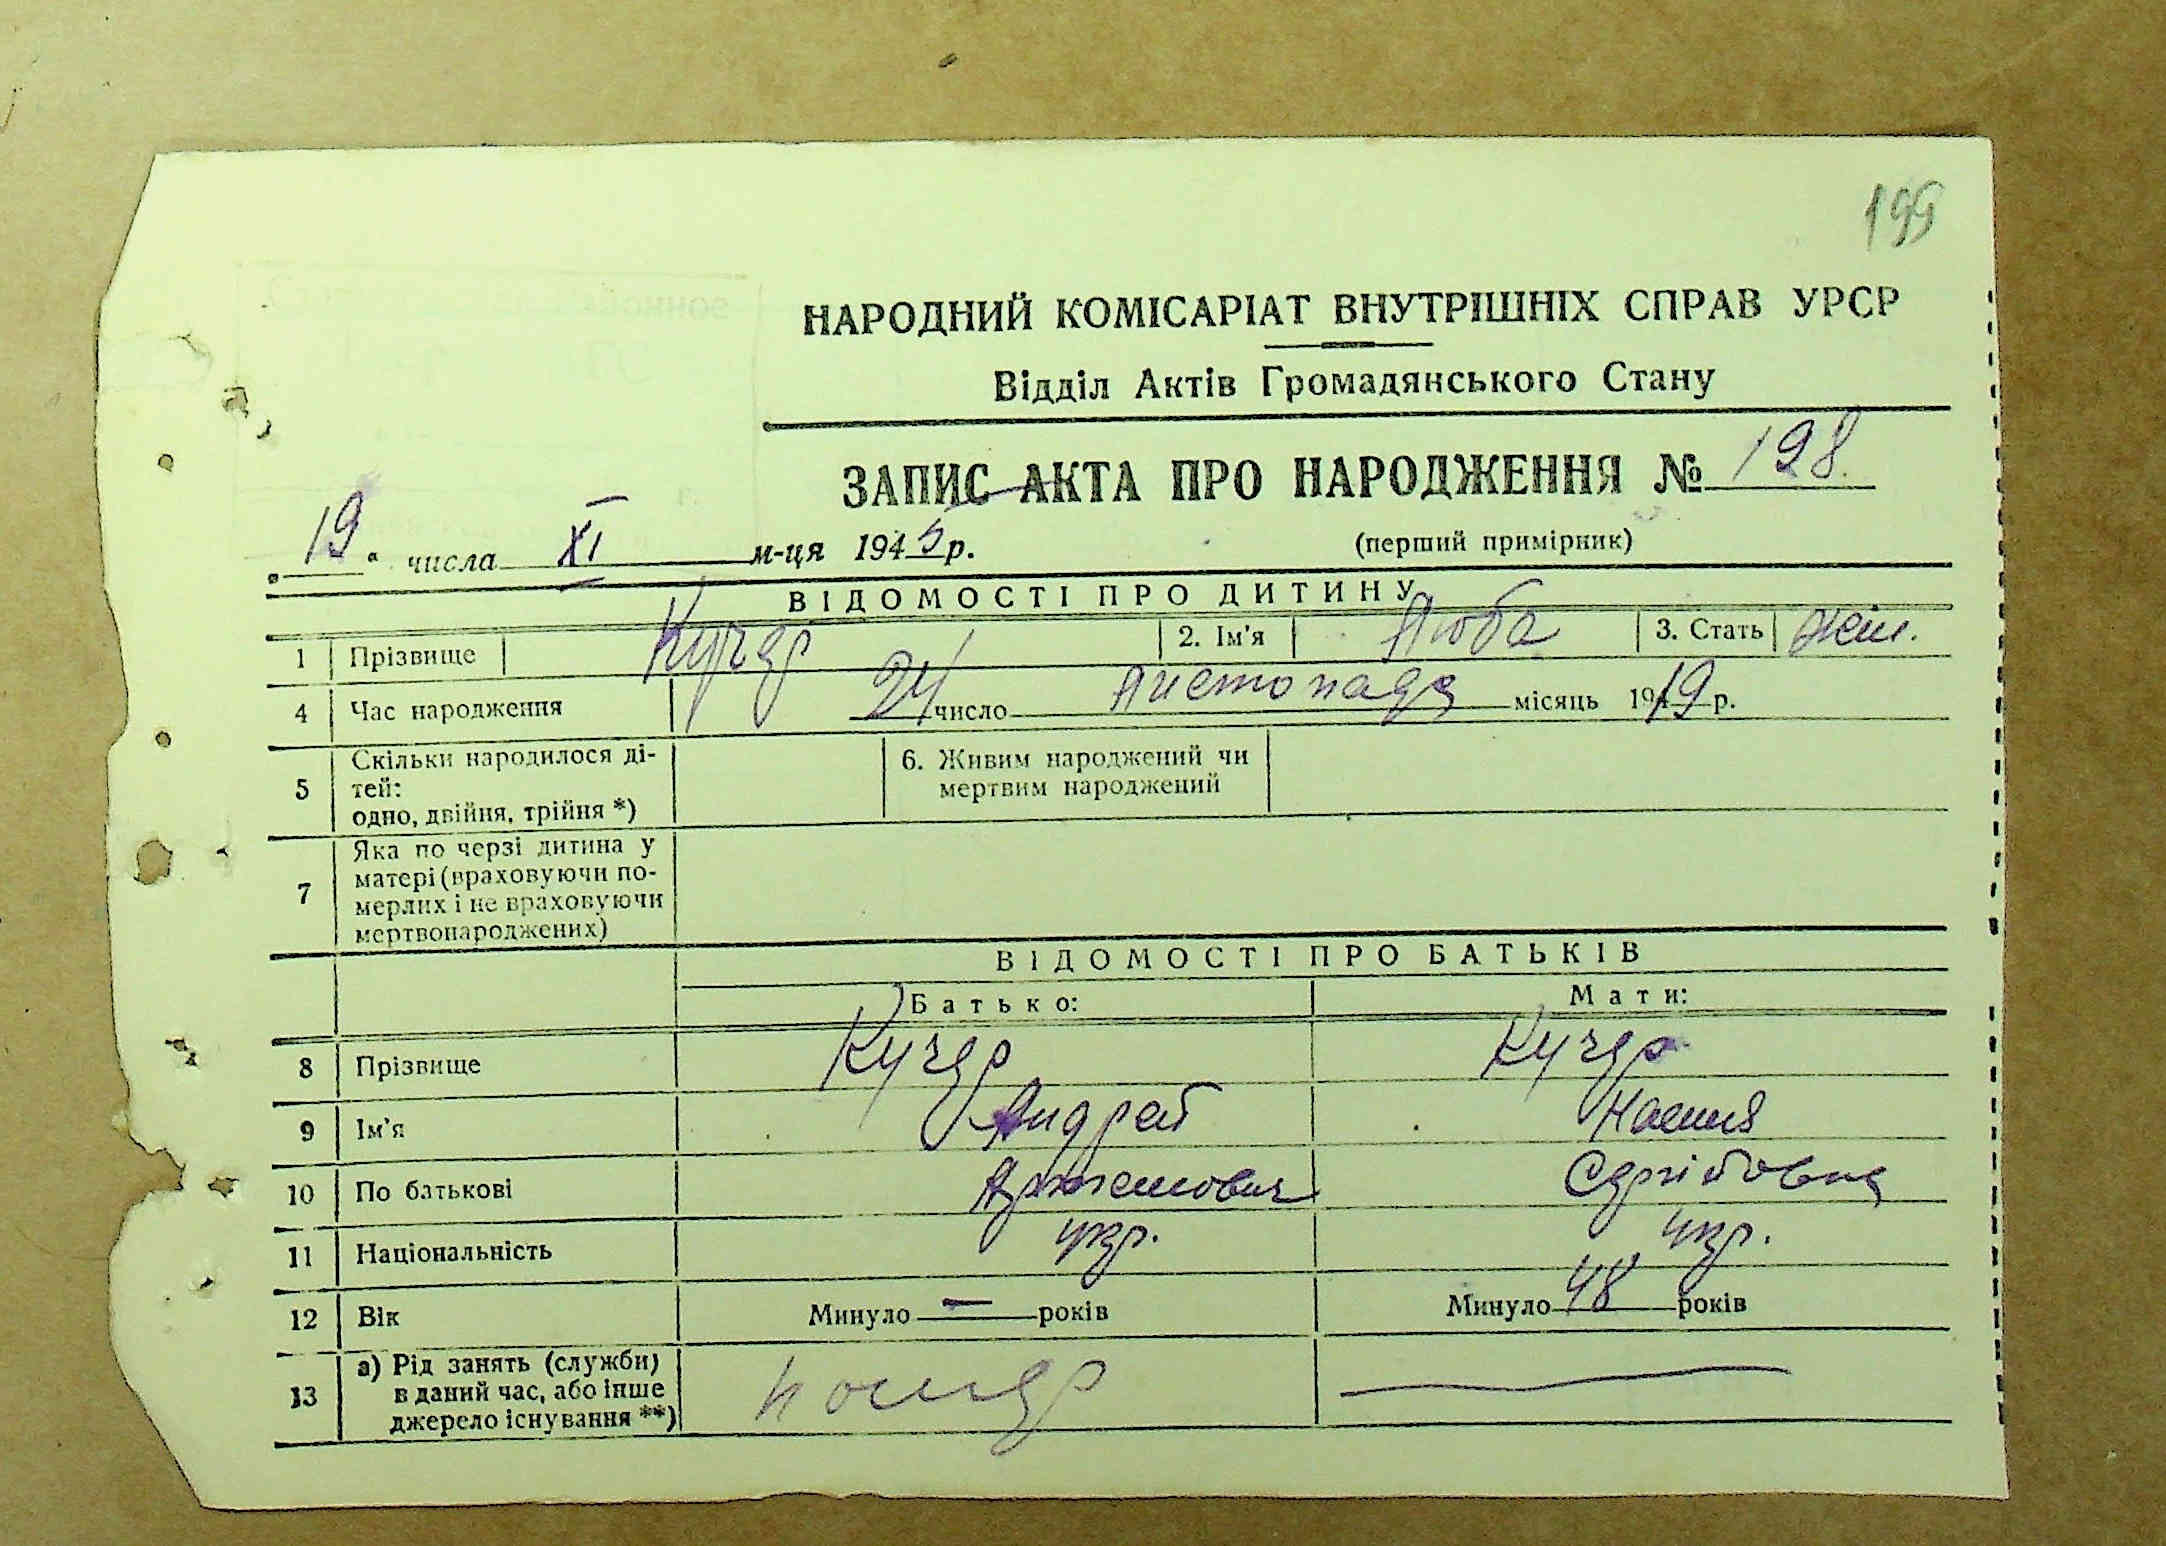 199
НАРОДНИЙ КОМІСАРІАТ ВНУТРІШНІХ СПРАВ УРСР
Відділ Актів Громадянського Стану
ЗАПИС АКТА ПРО НАРОДЖЕННЯ № 198
„19“ числа XI м-ця 1945 р.
(перший примірник)
ВІДОМОСТІ ПРО ДИТИНУ
1 Прізвище Кучер 2. Ім'я Люба 3. Стать жін.
4 Час народження 24 число Листопада місяць 1919 р.
5 Скільки народилося ді-
тей:
одно, двійня, трійня *)
6. Живим народжений чи
мертвим народжений
7 Яка по черзі дитина у
матері (враховуючи по-
мерлих і не враховуючи
мертвонароджених)
ВІДОМОСТІ ПРО БАТЬКІВ
Батько: Мати:
8 Прізвище Кучер Кучер
9 Ім'я Андрей
10 По батькові Артемович Сергіївна
11 Національність укр. укр.
12 Вік Минуло — років Минуло 48 років
13 а) Рід занять (служби)
в даний час, або інше
джерело існування **)
помер —